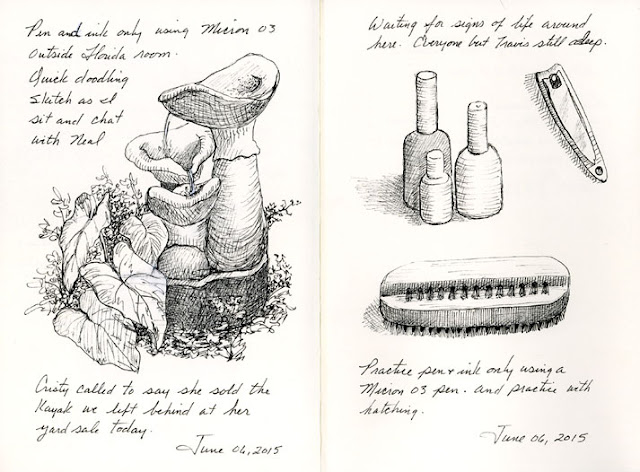 Pen and ink only using Micron 03
outside Florida room.
Quick doodling
Sketch as I
sit and chat
with Neal
Cristy called to say she sold the
Kayak we left behind at her
yard sale today.
June 06, 2015
Waiting for signs of life around
here. Everyone but Travis still asleep.
Practice pen & ink only using a
Micron 03 pen. and practice with
hatching.
June 06, 2015